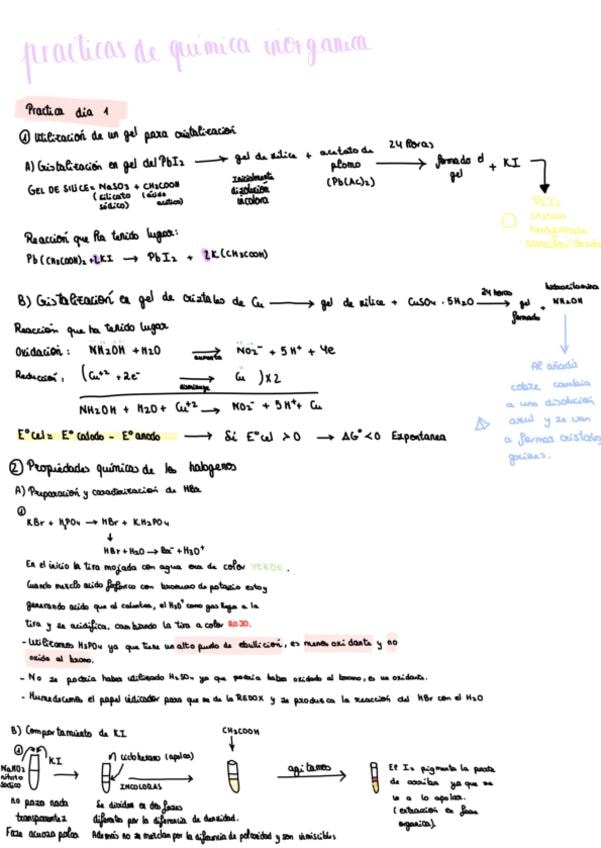 practicas de química inorganica
Practica dia 1
① Utilización de un gel para cristalización
A) Cristalización en gel del PbI2 → gel de silice + acetato de plomo (Pb(Ac)2) 24 horas → formado el gel + KI
GEL DE SILICE = NaSO3 + CH3COOH
(silicato sódico) (ácido acético)
Inicialmente disolución incolora
PbI2
cristales
hexagonales
Reacción que ha tenido lugar:
Pb(CH3COO)2 + 2KI → PbI2 + 2K(CH3COOH)
B) Cristalización en gel de cristales de Cu → gel de silice + CuSO4 · 5H2O 24 horas → gel formado + hidroxilamina NH2OH
Reacción que ha tenido lugar
Oxidación: NH2OH + H2O → NO2⁻ + 5H⁺ + 4e
aumenta
Reducción: (Cu⁺² + 2e⁻ → Cu )x2
disminuye
NH2OH + H2O + Cu⁺² → NO2⁻ + 5H⁺ + Cu
Al añadir
cobre cambia
a una disolución
azul y se van
a formar cristales
E°cel = E°catodo - E°anodo → Si E°cel > 0 → ΔG° < 0 Espontanea
② Propiedades químicas de los halogenos
A) Preparación y caracterización de HBr
①
KBr + H3PO4 → HBr + KH2PO4
↓
HBr + H2O → Br⁻ + H3O⁺
En el inicio la tira mojada con agua era de color VERDE.
Cuando mezclo acido fosforico con bromuro de potasio estoy
generando acido que al calentar, el H3O⁺ como gas llega a la
tira y se acidifica, cambiando la tira a color ROJO.
- Utilizamos H3PO4 ya que tiene un alto punto de ebullición, es menos oxidante y no
oxida al bromo.
- No se podria haber utilizado H2SO4 ya que podria haber oxidado al bromo, es un oxidante.
- Humedecemos el papel indicador para que se de la REDOX y se produzca la reacción del HBr con el H2O
B) Comportamiento de KI
CH3COOH
①
KI
NaNO2
nitrito
sodico
ciclohexano (apolar)
INCOLORAS
agitamos
El I2 pigmenta la parte
de arriba ya que se
va a lo apolar.
(extracción en fase
organica).
no pasa nada
transparentes
Fase acuosa polar
Se dividen en dos fases
diferentes por la diferencia de densidad.
Además no se mezclan por la diferencia de polaridad y son inmiscibles